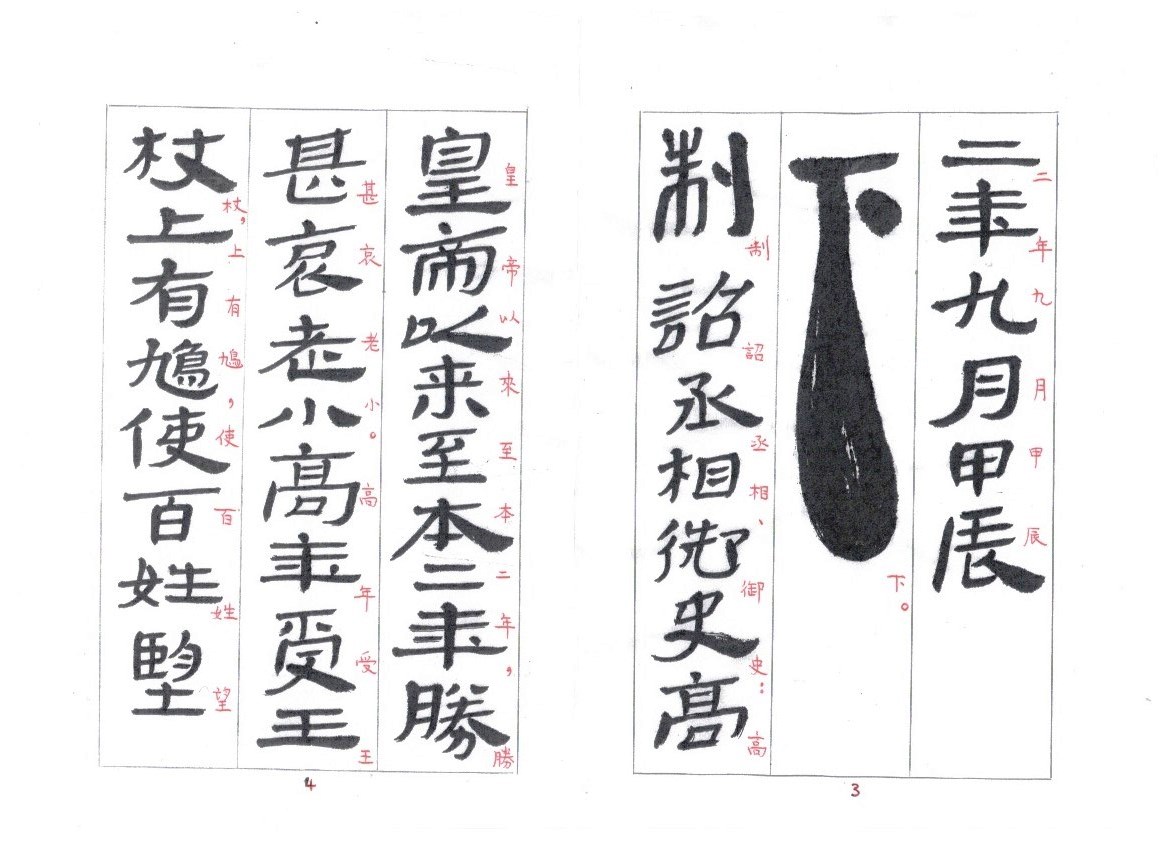 二年九月甲辰
二年九月甲辰
下
下。
制詔丞相御史高
制詔丞相、御史:高
3
皇帝以来至本二年勝
皇帝以來至本二年,勝
甚哀老小高年受王
甚哀老小。高年受王
杖上有鳩使百姓望
杖,上有鳩,使百姓望
4